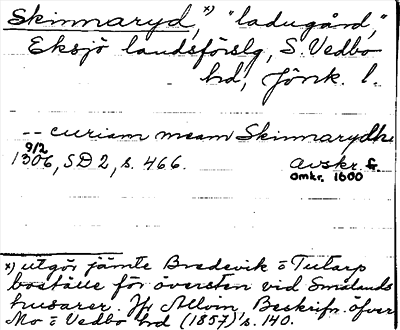 Skinnaryd,ˣ⁾ "ladugård,"
Eksjö landsförslg, S. Vedbo
hd, Jönk. l.
-- curiam meam Skinnarydhe
9/2
1306, SD 2, s. 466. avskr. f.
omkr. 1600
x) utgör jämte Bredevik o Tutarp
boställe för översten vid Smålands
husarer. Jfr Allvin, Beskrifn. öfver
Mo o Vedbo hd (1857), s. 140.